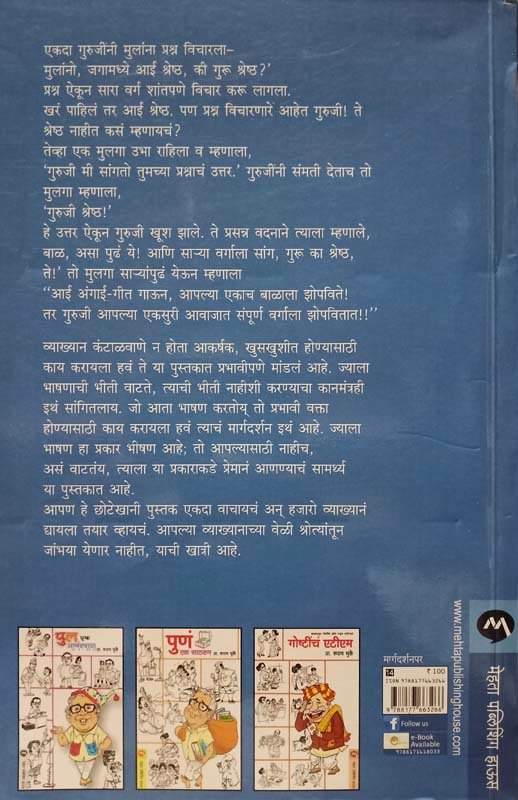 एकदा गुरुजींनी मुलांना प्रश्न विचारला–
मुलांनो, जगामध्ये आई श्रेष्ठ, की गुरू श्रेष्ठ?'
प्रश्न ऐकून सारा वर्ग शांतपणे विचार करू लागला.
खरं पाहिलं तर आई श्रेष्ठ. पण प्रश्न विचारणारे आहेत गुरुजी! ते
श्रेष्ठ नाहीत कसं म्हणायचं?
तेव्हा एक मुलगा उभा राहिला व म्हणाला,
'गुरुजी मी सांगतो तुमच्या प्रश्नाचं उत्तर.' गुरुजींनी संमती देताच तो
मुलगा म्हणाला,
'गुरुजी श्रेष्ठ!'
हे उत्तर ऐकून गुरुजी खूश झाले. ते प्रसन्न वदनाने त्याला म्हणाले,
बाळ, असा पुढं ये! आणि साऱ्या वर्गाला सांग, गुरू का श्रेष्ठ,
ते!' तो मुलगा साऱ्यांपुढं येऊन म्हणाला
"आई अंगाई-गीत गाऊन, आपल्या एकाच बाळाला झोपविते!
तर गुरुजी आपल्या एकसुरी आवाजात संपूर्ण वर्गाला झोपवितात!!"
व्याख्यान कंटाळवाणे न होता आकर्षक, खुसखुशीत होण्यासाठी
काय करायला हवं ते या पुस्तकात प्रभावीपणे मांडलं आहे. ज्याला
भाषणाची भीती वाटते, त्याची भीती नाहीशी करण्याचा कानमंत्रही
इथं सांगितलाय. जो आता भाषण करतोय् तो प्रभावी वक्ता
होण्यासाठी काय करायला हवं त्याचं मार्गदर्शन इथं आहे. ज्याला
भाषण हा प्रकार भीषण आहे; तो आपल्यासाठी नाहीच,
असं वाटतंय, त्याला या प्रकाराकडे प्रेमानं आणण्याचं सामर्थ्य
या पुस्तकात आहे.
आपण हे छोटेखानी पुस्तक एकदा वाचायचं अन् हजारो व्याख्यानं
द्यायला तयार व्हायचं. आपल्या व्याख्यानाच्या वेळी श्रोत्यांतून
जांभया येणार नाहीत, याची खात्री आहे.
पुलं
प्रा. श्याम भुर्के
पुणं
एक साठवण
प्रा. श्याम भुर्के
गोष्टींचं एटीएम
प्रा. श्याम भुर्के
मार्गदर्शनपर
14
₹ 100
ISBN 9788177663266
9 788177 663266
Follow us
e-Book
Available
9788171618033
www.mehtapublishinghouse.com
मेहता पब्लिशिंग हाऊस